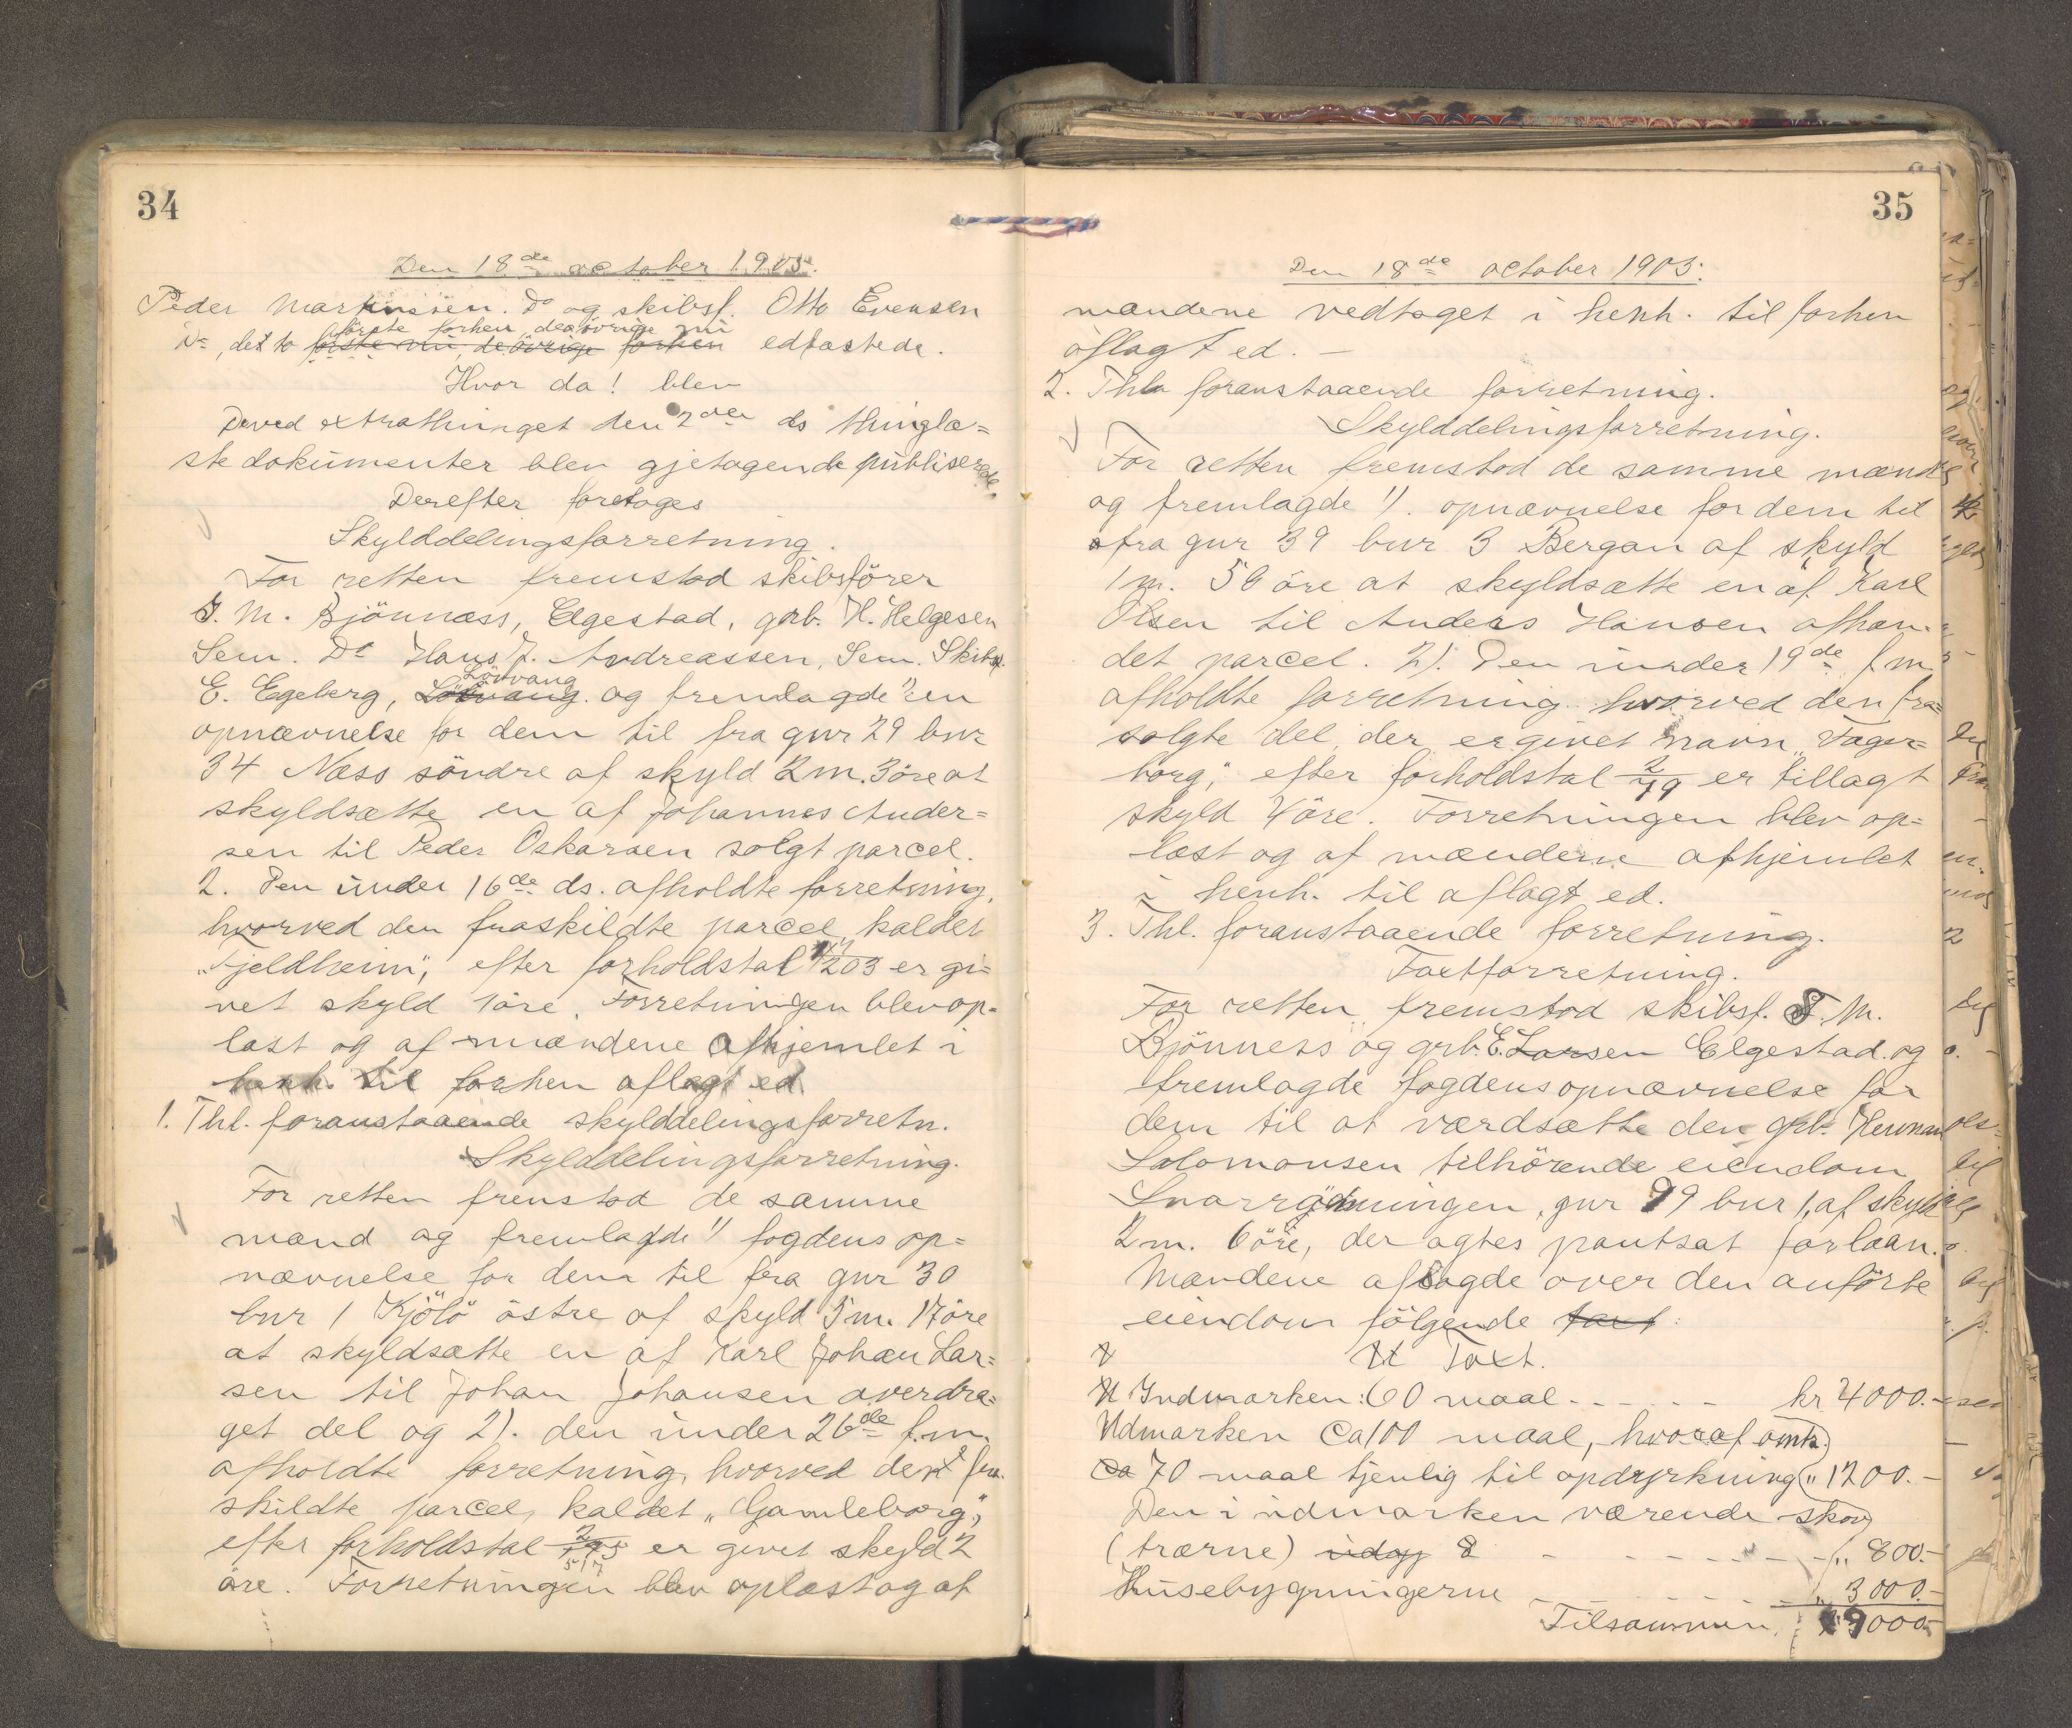 34
Den 18de october 1905.
Peder Martinssen. Do og skibsf. Otto Evensen
Do, det to første forhen, de øvrige nu
første nu, de øvrige forhen edfæstede.
Hvor da! blev
De ved extrathinget den 2den ds thinglæ=
ste dokumenter blev gjetagende publiserede.
Derefter foretoges
Skylddelingsforretning.
For retten fremstod skibsfører
J. M. Bjönnæss, Elgestad, grb. H. Helgesen
Sem. Do Hans J. Andreassen, Sem. Skibsf.
Lövvang
E. Egeberg, Lövvang og fremlagde 1) en
opnævnelse for dem til fra gnr 29 bnr
34 Næss söndre af skyld 2 m. 3 öre at
skyldsætte en af Johannes Ander=
sen til Peder Oskarsen solgt parcel.
2. Den under 16de ds. afholdte forretning,
hvorved den fraskildte parcel, kaldet
„Fjeldheim“, efter forholdstal /203 er gi=
vet skyld 1 öre. Forretningen blev op=
læst og af mændene afhjemlet i
henh. til forhen aflagt ed.
1. Thl. foranstaaende skylddelingsforretn.
Skylddelingsforretning.
For retten fremstod de samme
mænd og fremlagde 1) fogdens op=
nævnelse for dem til fra gnr 30
bnr 1 Kjölö östre af skyld 5 m. 17 öre
at skyldsætte en af Karl Johan Lar=
sen til Johan Johansen overdra=
get del og 2). den under 26de f.m.
afholdte forretning, hvorved den fra=
skildte parcel, kaldet „Gamleborg“,
efter forholdstal 2/ er givet skyld 2
öre. Forretningen blev oplæst og af
35
Den 18de october 1905.
mændene vedtaget i henh. til forhen
aflagt ed. —
2. Thl. foranstaaende forretning.
Skylddelingsforretning.
For retten fremstod de samme mænd
og fremlagde 1). opnævnelse for dem til
fra gnr 39 bnr 3 Bergan af skyld
1 m. 56 öre at skyldsætte en af Karl
Olsen til Anders Hansen afhæn=
det parcel. 2). Den under 19de f.m.
afholdte forretning hvorved den fra=
solgte del, der er givet navn „Fager=
borg“, efter forholdstal 2/79 er tillagt
skyld 4 öre. Forretningen blev op=
læst og af mændene afhjemlet
i henh. til aflagt ed.
3. Thl. foranstaaende forretning.
Taxtforretning.
For retten fremstod skibsf. J. M.
Bjönness og grb. E. Larsen Elgestad og
fremlagde fogdens opnævnelse for
dem til at værdsætte den grb. Herman
Salomonsen tilhörende eiendom
Snarrødningen, gnr 99 bnr 1, af skyld
2 m. 6 öre, der agtes pantsat for laan.
Mændene afsagde over den anförte
eiendom fölgende taxt:
Taxt.
Indmarken: 60 maal - - - - - kr 4000.-
Udmarken Ca 100 maal, hvoraf omtr.
ca 70 maal tjenlig til opdyrkning „ 1200.-
Den i udmarken værende skov
(trærne) - - - - - - „ 800.-
Husebygningerne - - - - - „ 3000.-
Tilsammen, 9000.-